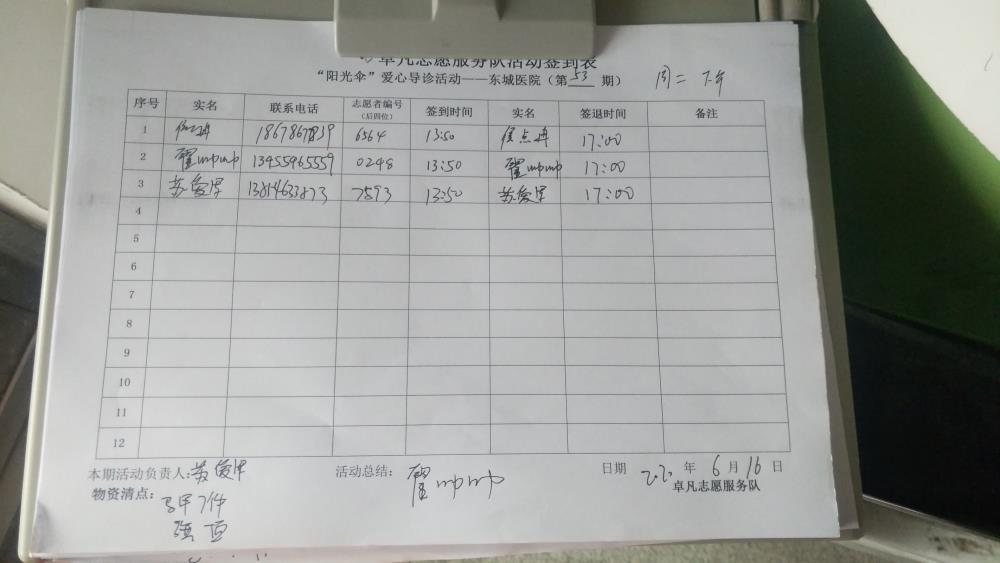 卓凡志愿服务队活动签到表
“阳光伞”爱心导诊活动——东城医院（第53期） 周二 下午
序号 实名 联系电话 志愿者编号（后四位） 签到时间 实名 签退时间 备注
1 6364 13:50 17:00
2 翟 13455965559 0248 13:50 翟 17:00
3 苏俊生 13814633873 7573 13:50 苏俊生 17:00
4
5
6
7
8
9
10
11
12
本期活动负责人: 苏俊生 活动总结: 翟 日期 2020年6月16日
物资清点: 马甲7件 卓凡志愿服务队